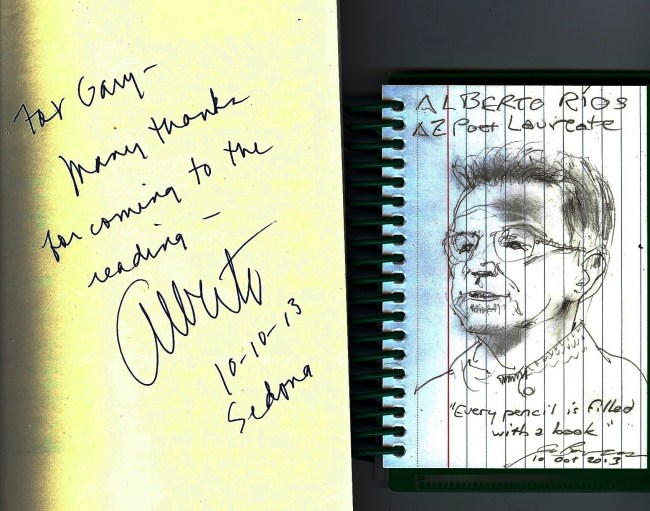 For Gary–
Many thanks
for coming to the
reading –
Alberto
10-10-13
Sedona
ALBERTO RÍOS
AZ Poet Laureate
"Every pencil is filled
with a book"
10 Oct 2013